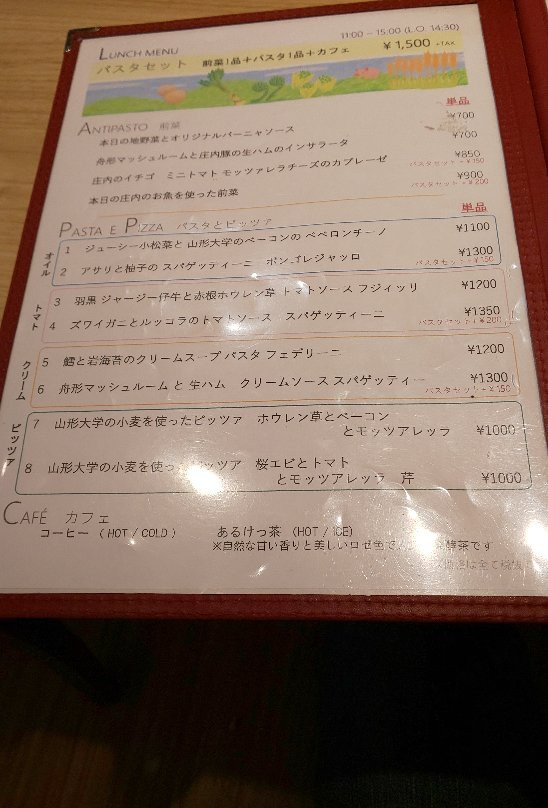 LUNCH MENU 11:00 – 15:00 (L.O. 14:30)
パスタセット 前菜1品+パスタ1品+カフェ ¥1,500 +TAX
ANTIPASTO 前菜 単品
本日の地野菜とオリジナルバーニャソース ¥700
舟形マッシュルームと庄内豚の生ハムのインサラータ ¥700
庄内のイチゴ ミニトマト モッツァレラチーズのカプレーゼ ¥850
パスタセット+¥150
本日の庄内のお魚を使った前菜 ¥900
パスタセット+¥200
PASTA E PIZZA パスタとピッツァ 単品
オイル
1 ジューシー小松菜と 山形大学のベーコンの ペペロンチーノ ¥1100
2 アサリと柚子の スパゲッティーニ ボンゴレジャッロ ¥1300
パスタセット+¥150
トマト
3 羽黒 ジャージー仔牛と赤根ホウレン草 トマトソース フジィッリ ¥1200
4 ズワイガニとルッコラのトマトソース スパゲッティーニ ¥1350
パスタセット+¥200
クリーム
5 鱈と岩海苔のクリームスープ パスタ フェデリーニ ¥1200
6 舟形マッシュルーム と 生ハム クリームソース スパゲッティー ¥1300
パスタセット+¥150
ピッツァ
7 山形大学の小麦を使ったピッツァ ホウレン草とベーコン
とモッツアレッラ ¥1000
8 山形大学の小麦を使ったピッツァ 桜エビとトマト
とモッツアレッラ 芹 ¥1000
CAFÉ カフェ
コーヒー (HOT / COLD) あるけっ茶 (HOT / ICE)
※自然な甘い香りと美しいロゼ色 酵茶です